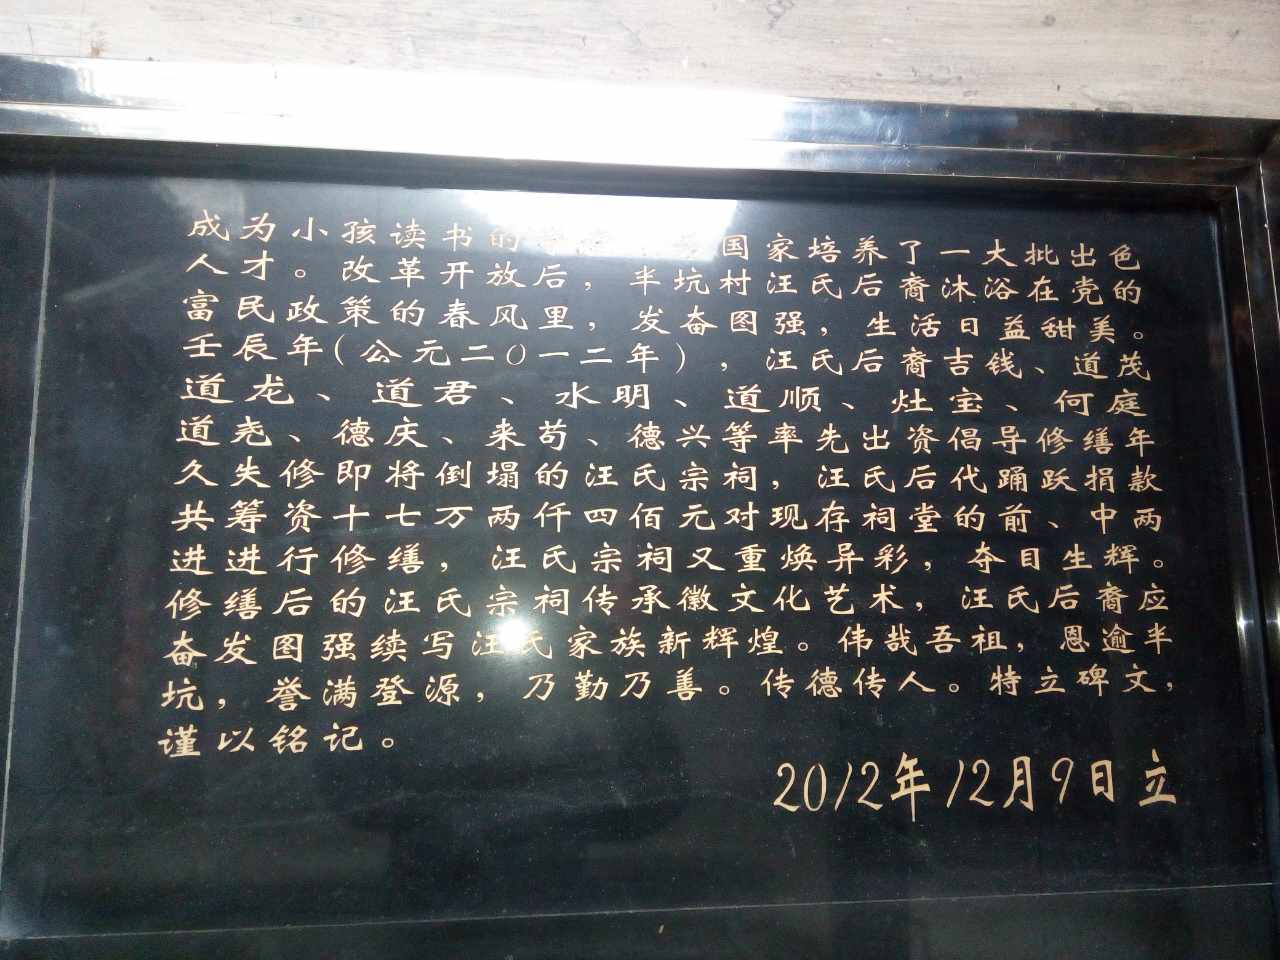 成为小孩读书的 国家培养了一大批出色
人才。改革开放后，半坑村汪氏后裔沐浴在党的
富民政策的春风里，发奋图强，生活日益甜美。
壬辰年(公元二〇一二年)，汪氏后裔吉钱、道茂
道龙、道君、水明、道顺、灶宝、何庭
道尧、德庆、来苟、德兴等率先出资倡导修缮年
久失修即将倒塌的汪氏宗祠，汪氏后代踊跃捐款
共筹资十七万两仟四佰元对现存祠堂的前、中两
进进行修缮，汪氏宗祠又重焕异彩，夺目生辉。
修缮后的汪氏宗祠传承徽文化艺术，汪氏后裔应
奋发图强续写汪氏家族新辉煌。伟哉吾祖，恩逾半
坑，誉满登源，乃勤乃善。传德传人。特立碑文，
谨以铭记。
2012年12月9日立